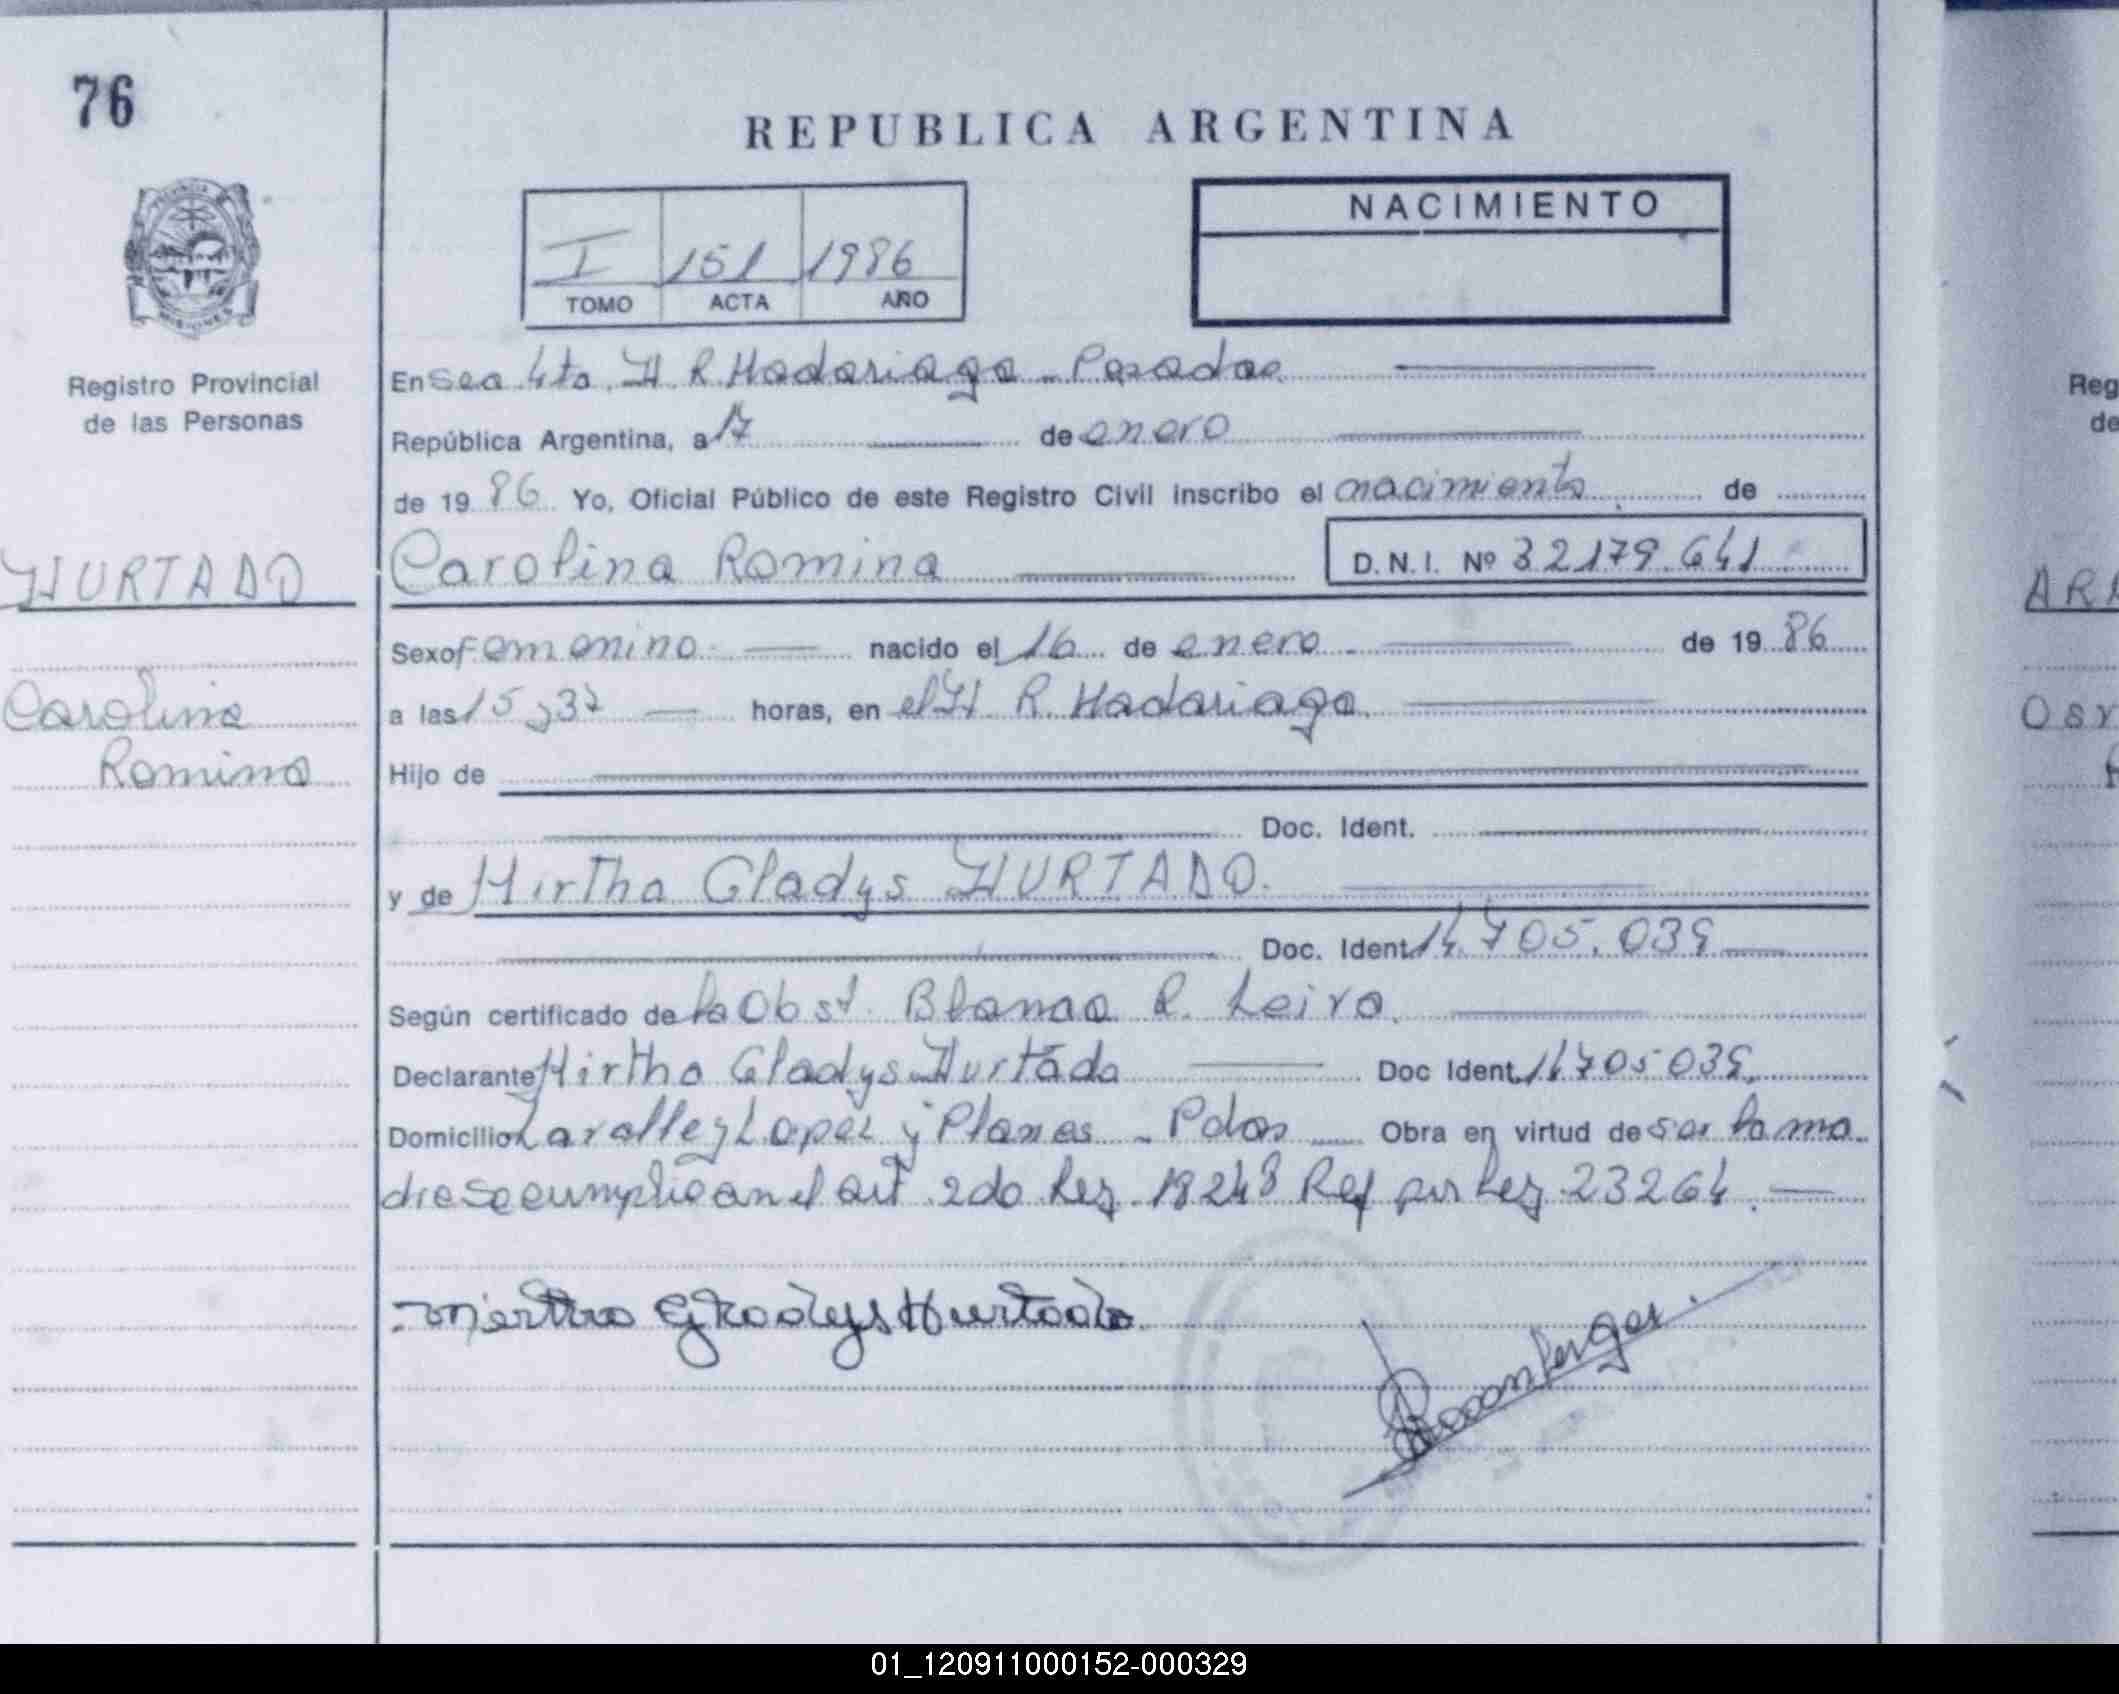 76
REPUBLICA ARGENTINA
NACIMIENTO
I 151 1986
TOMO ACTA AÑO
PROVINCIA
MISIONES
Registro Provincial
de las Personas
HURTADO
Carolina
Romina
En Sec 4ta. H R. Madariaga - Posadas
República Argentina, a 17 de enero
de 19 86 Yo, Oficial Público de este Registro Civil inscribo el nacimiento de
Carolina Romina D.N.I. Nº 32179.641
Sexo femenino nacido el 16 de enero de 19 86
a las 15,37 horas, en el H. R. Madariaga
Hijo de
Doc. Ident.
y de Mirtha Gladys HURTADO.
Doc. Ident 14.705.039
Según certificado de la Obst. Blanca R. Leiva
Declarante Mirtha Gladys Hurtado Doc Ident. 14705039.
Domicilio Lavalle y Lopez y Planes - Pdas Obra en virtud de ser la ma
dre se cumplio en el art 2do Ley 18248 Ref por Ley 23264.
Mirtha Gladys Hurtado
Reg
de
ARR
Osv
01_120911000152-000329